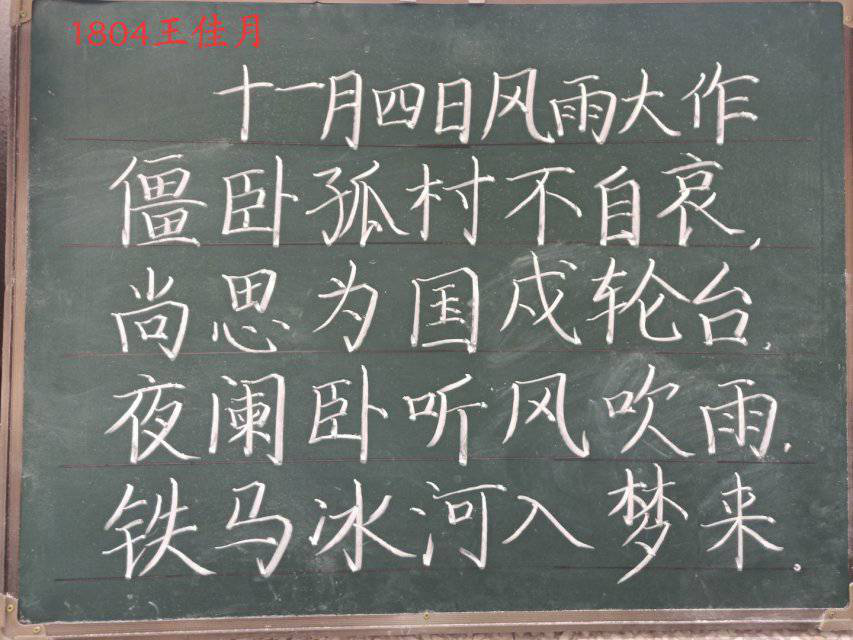 1804王佳月
十一月四日风雨大作
僵卧孤村不自哀,
尚思为国戍轮台.
夜阑卧听风吹雨.
铁马冰河入梦来.